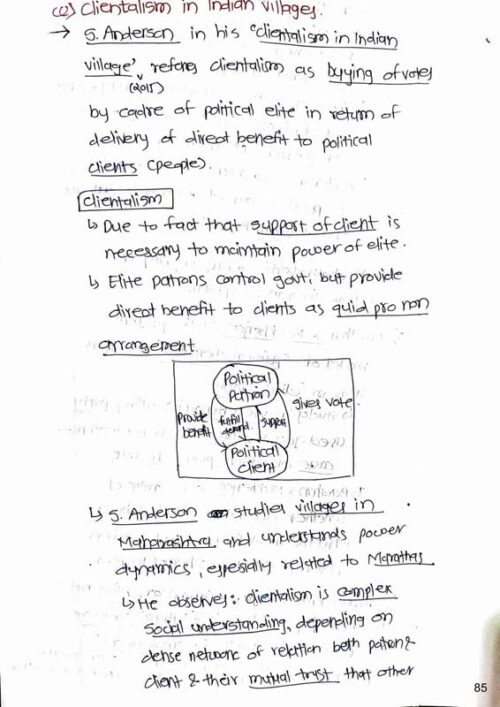 (e) Clientalism in Indian Villages.
→ S. Anderson in his 'clientalism in Indian
village' refers clientalism as buying of votes
(2015)
by cadre of political elite in return of
delivery of direct benefit to political
clients (people).
Clientalism
↳ Due to fact that support of client is
necessary to maintain power of elite.
↳ Elite patrons control govt, but provide
direct benefit to clients as quid pro non
arrangement
Political
Patron
Provide
benefit
fulfill
demand
support
gives vote.
Political
client
↳ S. Anderson studies villages in
Maharashtra and understands power
dynamics, especially related to Marathas
↳ He observes: clientalism is complex
social understanding, depending on
dense network of relation both patron &
client & their mutual trust that other
85